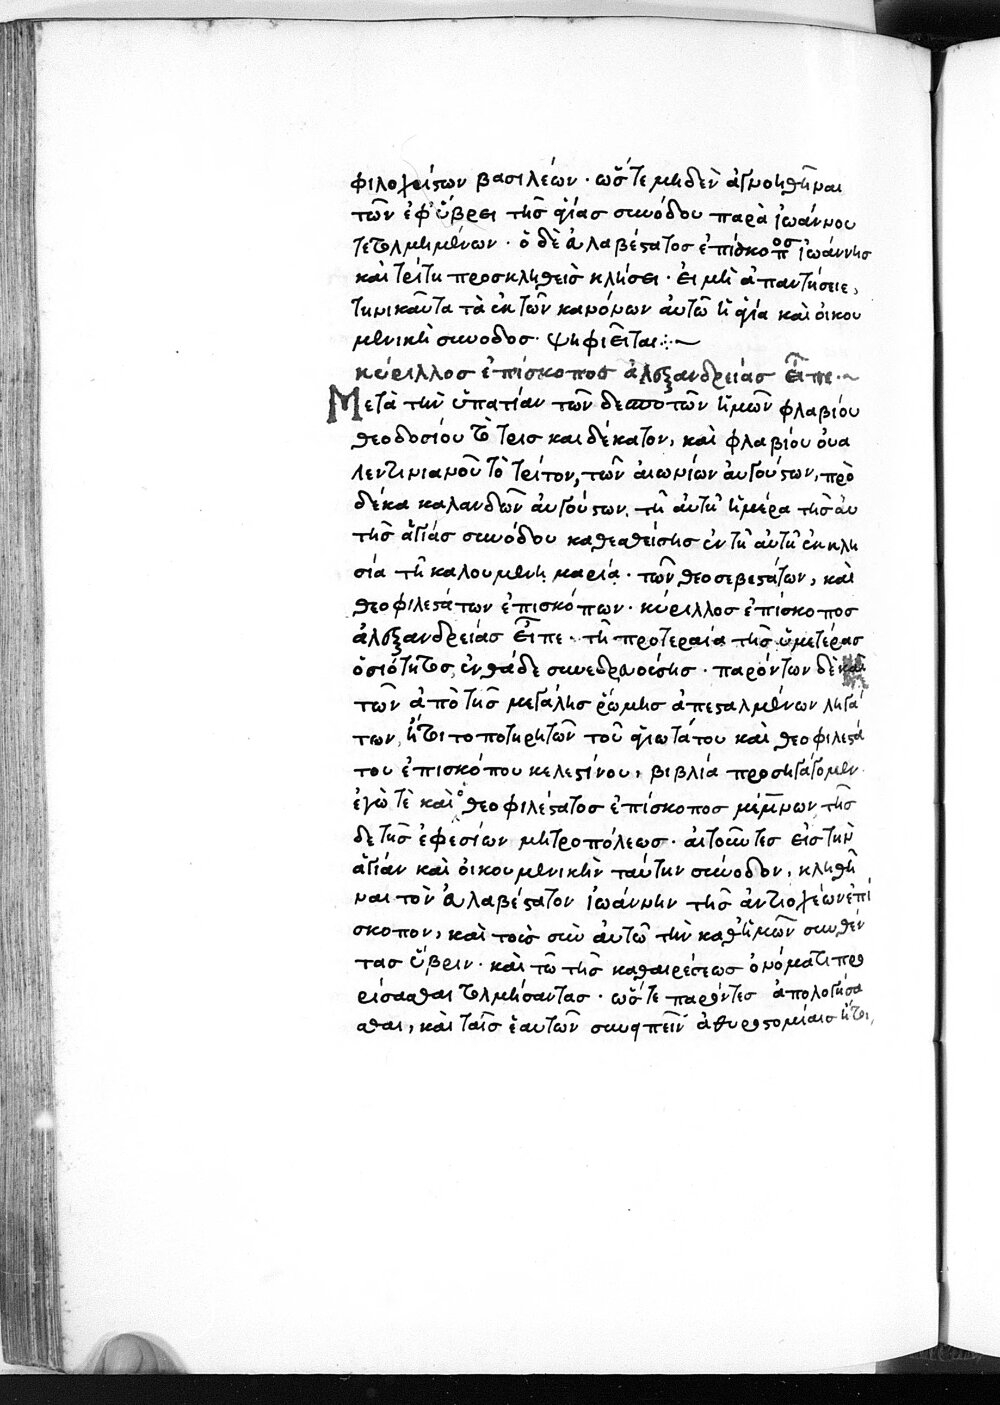 φιλοχρίστων βασιλέων · ὥστε μηδὲν ἀγνοηθῆναι
τῶν ἐφ' ὕβρει τῆς ἁγίας συνόδου παρὰ ἰωάννου
τετολμημένων · ὁ δὲ εὐλαβέστατος ἐπίσκοπος ἰωάννης
καὶ τρίτη προσκληθεὶς κλήσει · εἰ μὴ ἀπαντήσειε,
τηνικαῦτα τὰ ἐκ τῶν κανόνων αὐτῶ ἡ ἁγία καὶ οἰκου
μενικὴ σύνοδος · ψηφιεῖται :~
κύριλλος ἐπίσκοπος ἀλεξανδρείας εἶπε ·~
Μετὰ τὴν ὑπατίαν τῶν δεσποτῶν ἡμῶν φλαβίου
θεοδοσίου τὸ τρισκαιδέκατον, καὶ φλαβίου οὐα
λεντινιανοῦ τὸ τρίτον, τῶν αἰωνίων αὐγούστων, πρὸ
δέκα καλανδῶν αὐγούστων. τῆ αὐτῆ ἡμέρα τῆς αὐ
τῆς ἁγίας συνόδου καθεσθείσης ἐν τῆ αὐτῆ ἐκκλη
σία τῆ καλουμένη μαρία · τῶν θεοσεβεστάτων, καὶ
θεοφιλεστάτων ἐπισκόπων · κύριλλος ἐπίσκοπος
ἀλεξανδρείας εἶπε · τῆ προτεραία τῆς ὑμετέρας
ὁσιότητος, ἐνθάδε συνεδρευούσης · παρόντων δὲ καὶ
τῶν ἀπὸ τῆς μεγάλης ῥώμης ἀπεσταλμένων ληγά
των, ἤτοι τοποτηρητῶν τοῦ ἁγιωτάτου καὶ θεοφιλεστά
του ἐπισκόπου κελεστίνου, βιβλία προσηγάγομεν
ἐγώ τε καὶ ὁ θεοφιλέστατος ἐπίσκοπος μέμνων τῆς
δε τῆς ἐφεσίων μητροπόλεως · αἰτοῦντες εἰς τὴν
ἁγίαν καὶ οἰκουμενικὴν ταύτην σύνοδον, κληθῆ
ναι τὸν εὐλαβέστατον ἰωάννην τῆς ἀντιοχέων ἐπί
σκοπον, καὶ τοὺς σὺν αὐτῶ τὴν καθ' ἡμῶν συνθέν
τας ὕβριν · καὶ τῶ τῆς καθαιρέσεως ὀνόματι προ
χρήσασθαι τολμήσαντας · ὥστε παρόντες ἀπολογήσα
σθαι, καὶ ταῖς ἑαυτῶν συνειπεῖν ἀθυροστομίαις ἤτοι,